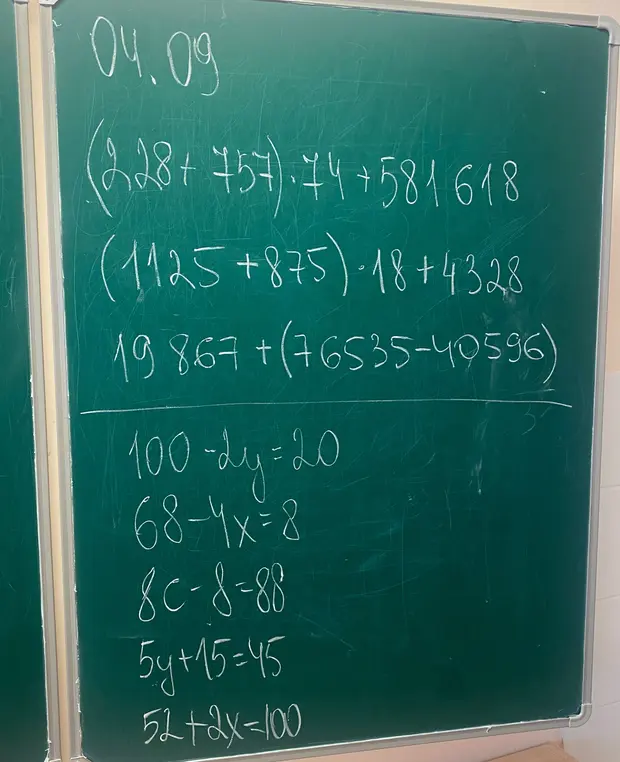 04.09
(228+757)·74+581618
(1125+875)·18+4328
19867+(76535-40596)
100-2y=20
68-4x=8
8c-8=88
5y+15=45
52+2x=100